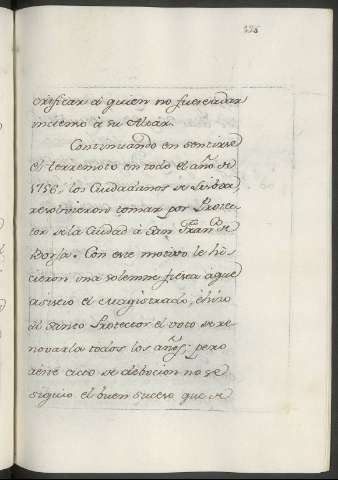 orificar á quien no fuese á dar
incienso á su Altar.
Continuando en sentirse
el terremoto en todo el año de
1756, los Ciudadanos de Lisboa
resolvieron tomar por Protec-
tor de la Ciudad á San Fran.co de
Borja. Con este motivo le hi-
cieron una solemne fiesta a que
asistio el Magistrado, é hizo
al Santo Protector el voto de re-
novarla todos los años; pero
á este acto de debocion no se
siguio el buen suceso que se